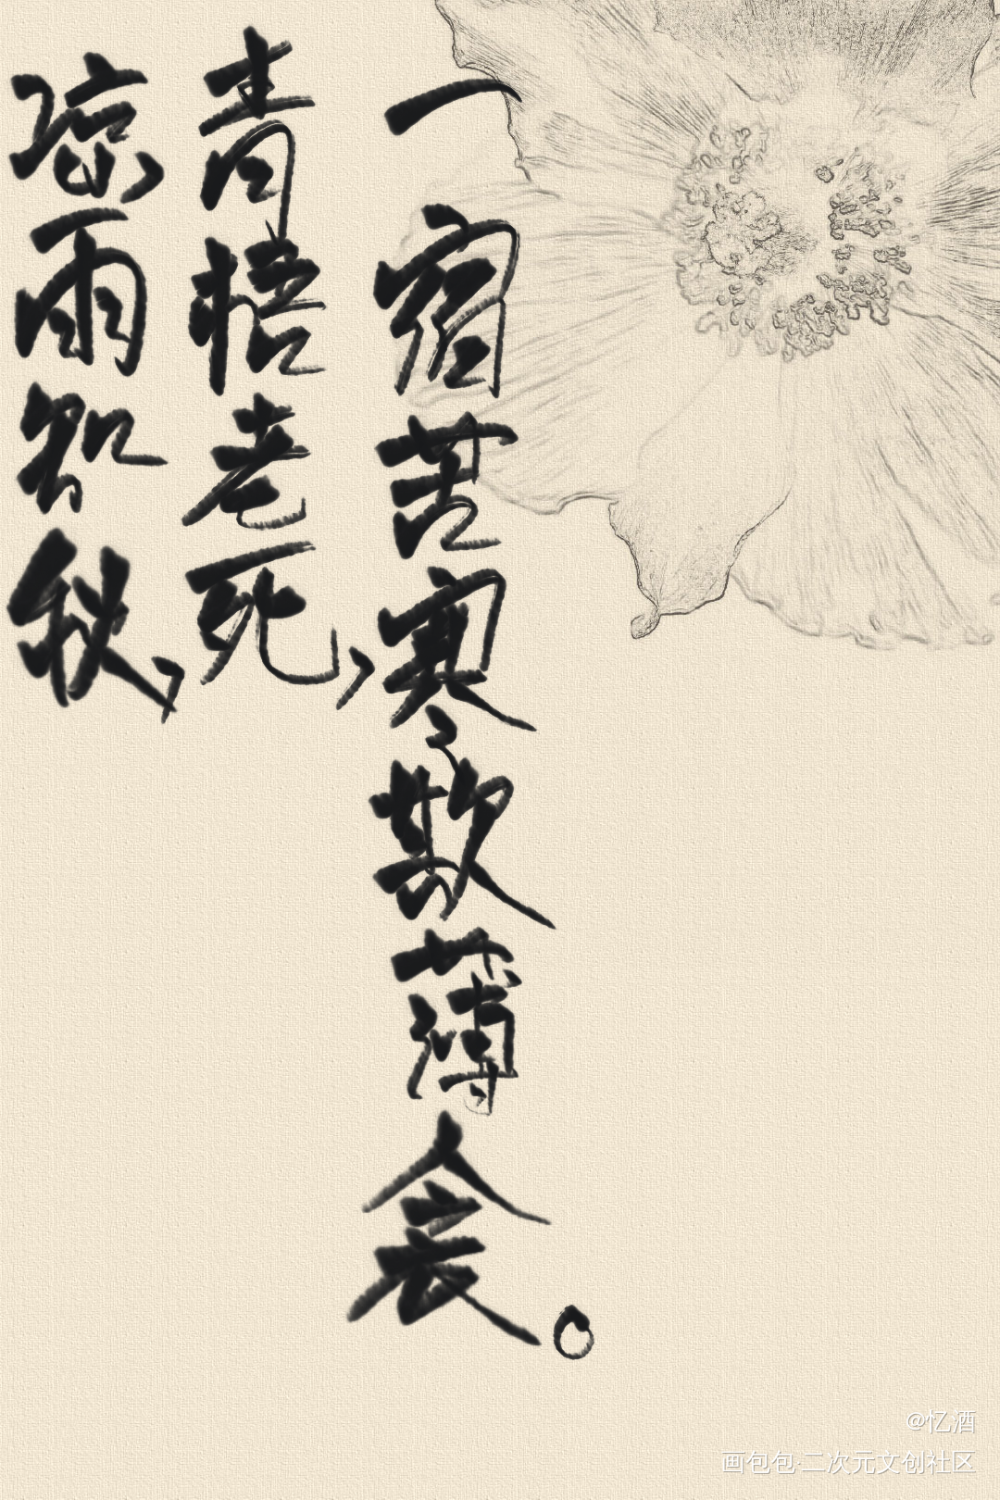 凉雨知秋，
青梧老死，
一宿苦寒欺薄衾。
@忆酒
画包包·二次元文创社区